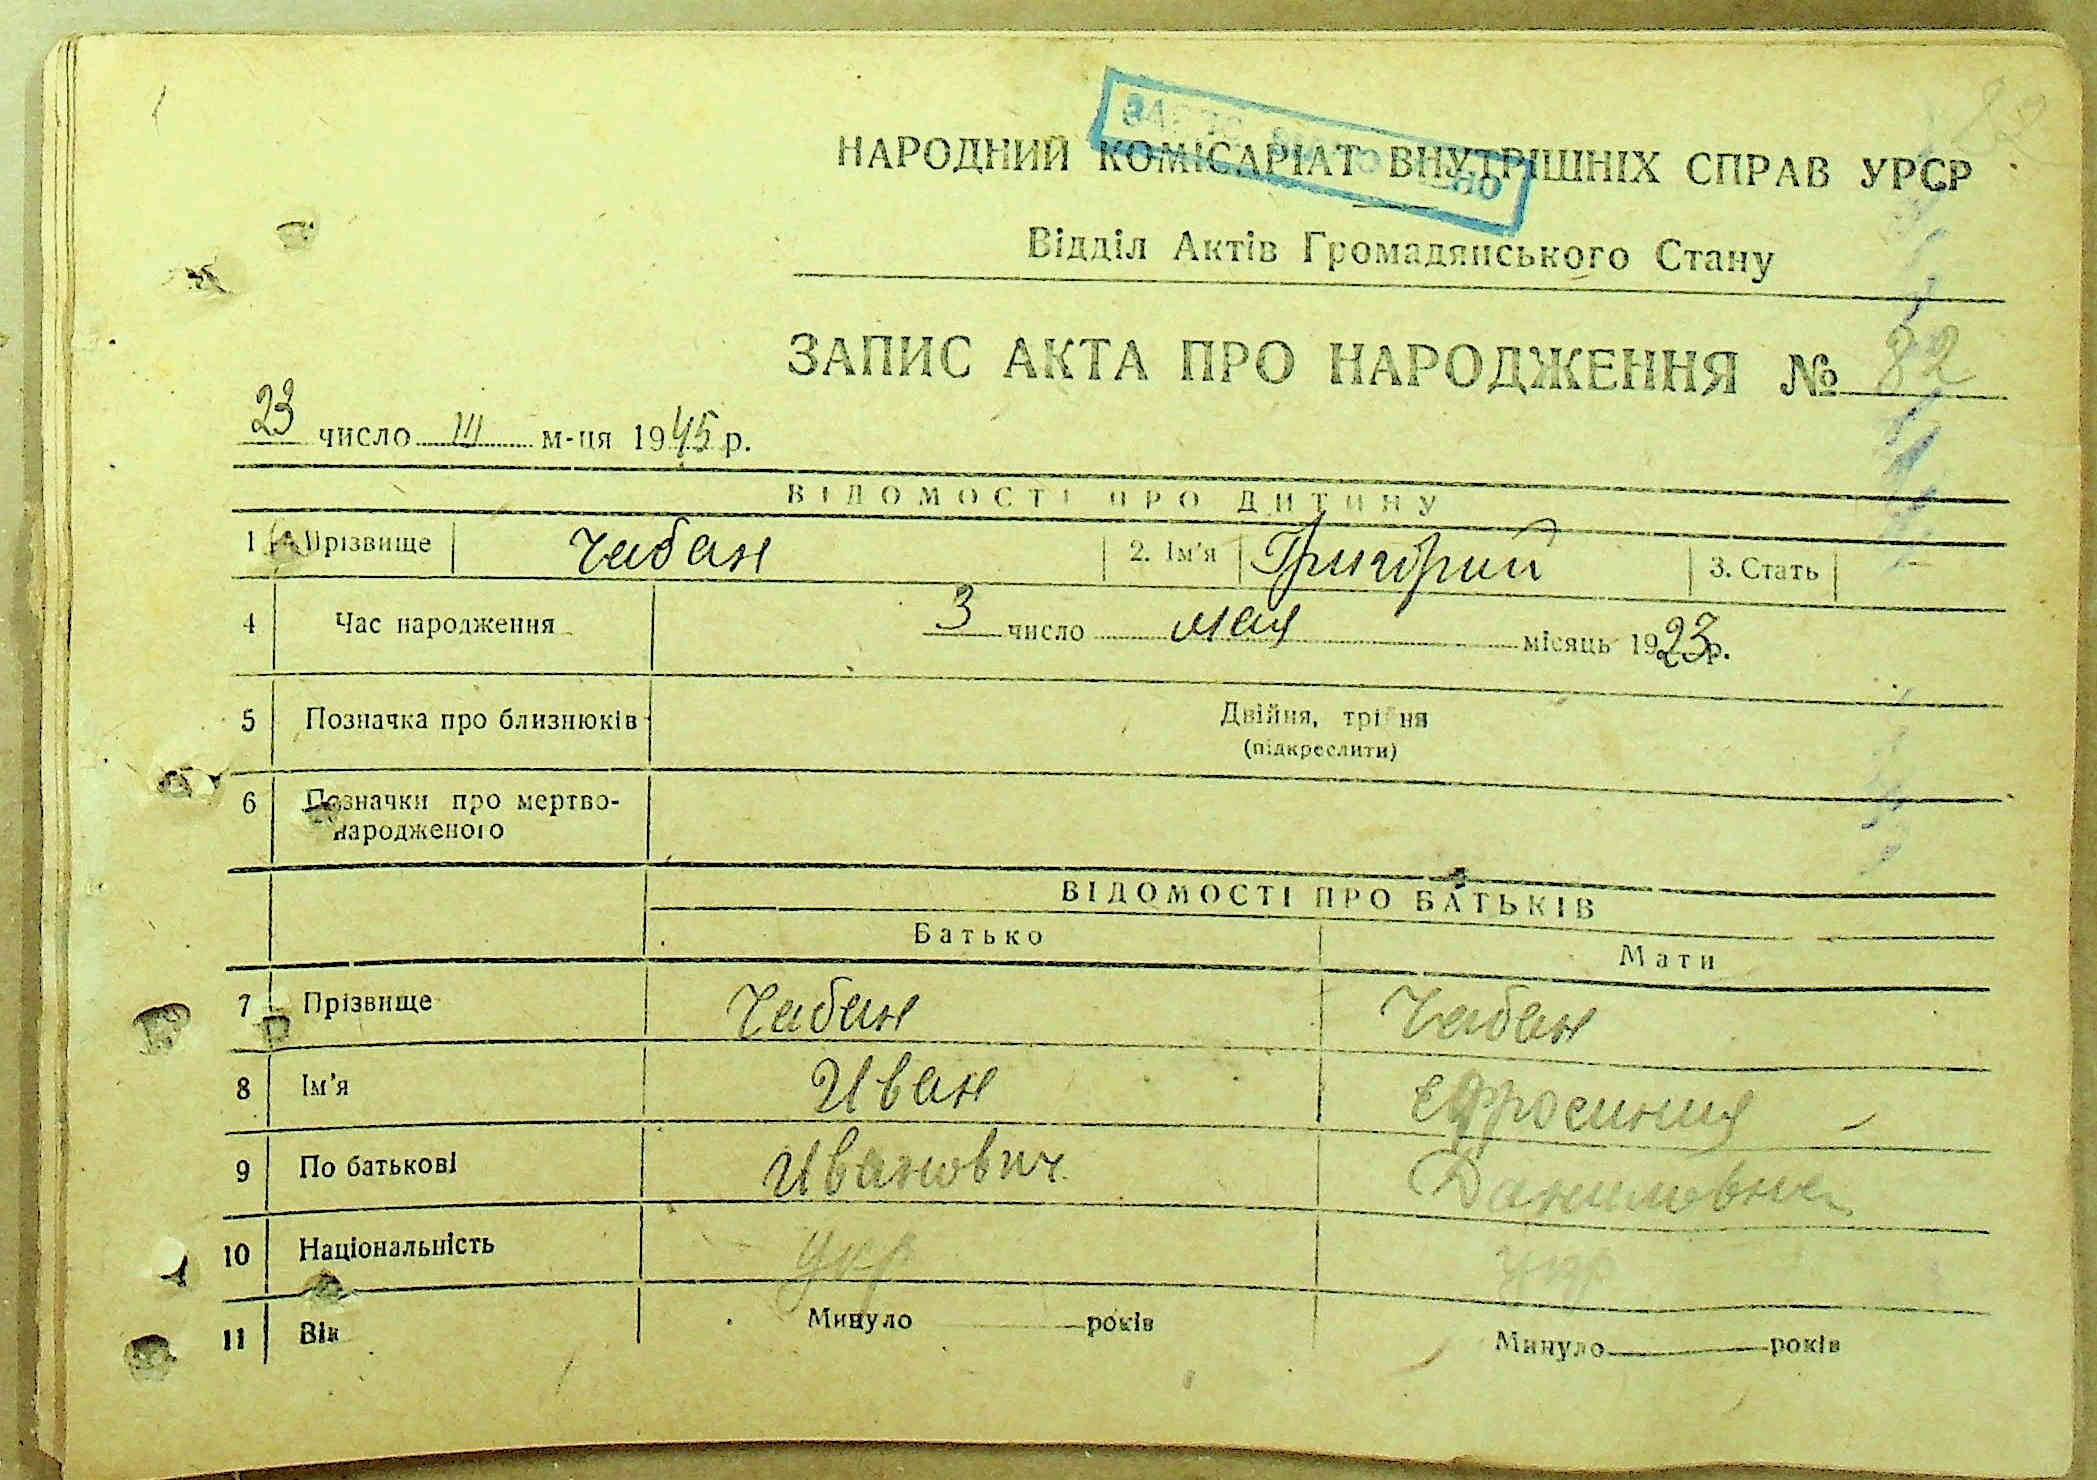 НАРОДНИЙ КОМІСАРІАТ ВНУТРІШНІХ СПРАВ УРСР
Відділ Актів Громадянського Стану
ЗАПИС АКТА ПРО НАРОДЖЕННЯ № 82
23 число III м-ця 1945 р.
ВІДОМОСТІ ПРО ДИТИНУ
1 Прізвище Чабан 2. Ім'я Григорий 3. Стать
4 Час народження 3 число мая місяць 1923 р.
5 Позначка про близнюків Двійня, трійня
(підкреслити)
6 Позначки про мертво-
народженого
ВІДОМОСТІ ПРО БАТЬКІВ
Батько Мати
7 Прізвище Чабан Чабан
8 Ім'я Иван Ефросиния
9 По батькові Иванович Даниловна
10 Національність укр укр
11 Вік Минуло років Минуло років